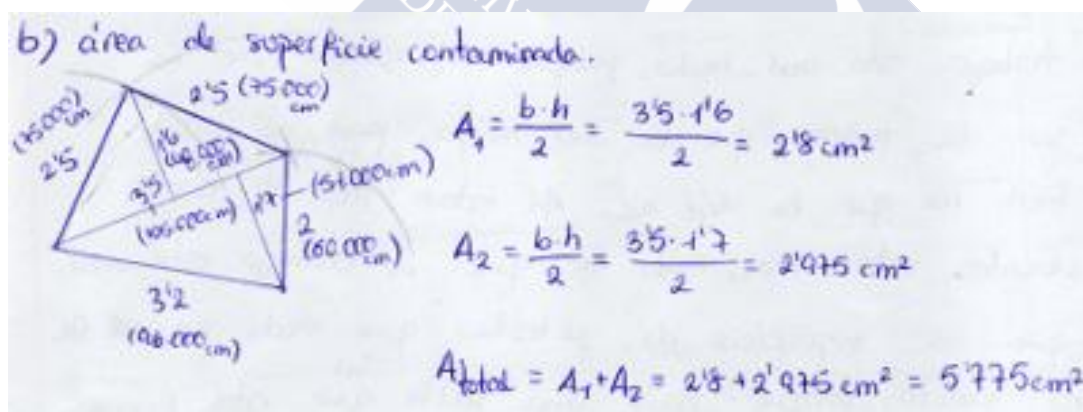 b) área de superficie contaminada.
2'5 (75.000 cm)
(75.000 cm)
2'5
1'6
(48.000 cm)
3'5
(105.000cm)
1'7
(51.000cm)
2
(60.000 cm)
3'2
(96.000 cm)
A₁ = b·h / 2 = 3'5·1'6 / 2 = 2'8 cm²
A₂ = b·h / 2 = 3'5·1'7 / 2 = 2'975 cm²
Atotal = A₁ + A₂ = 2'8 + 2'975 cm² = 5'775cm²